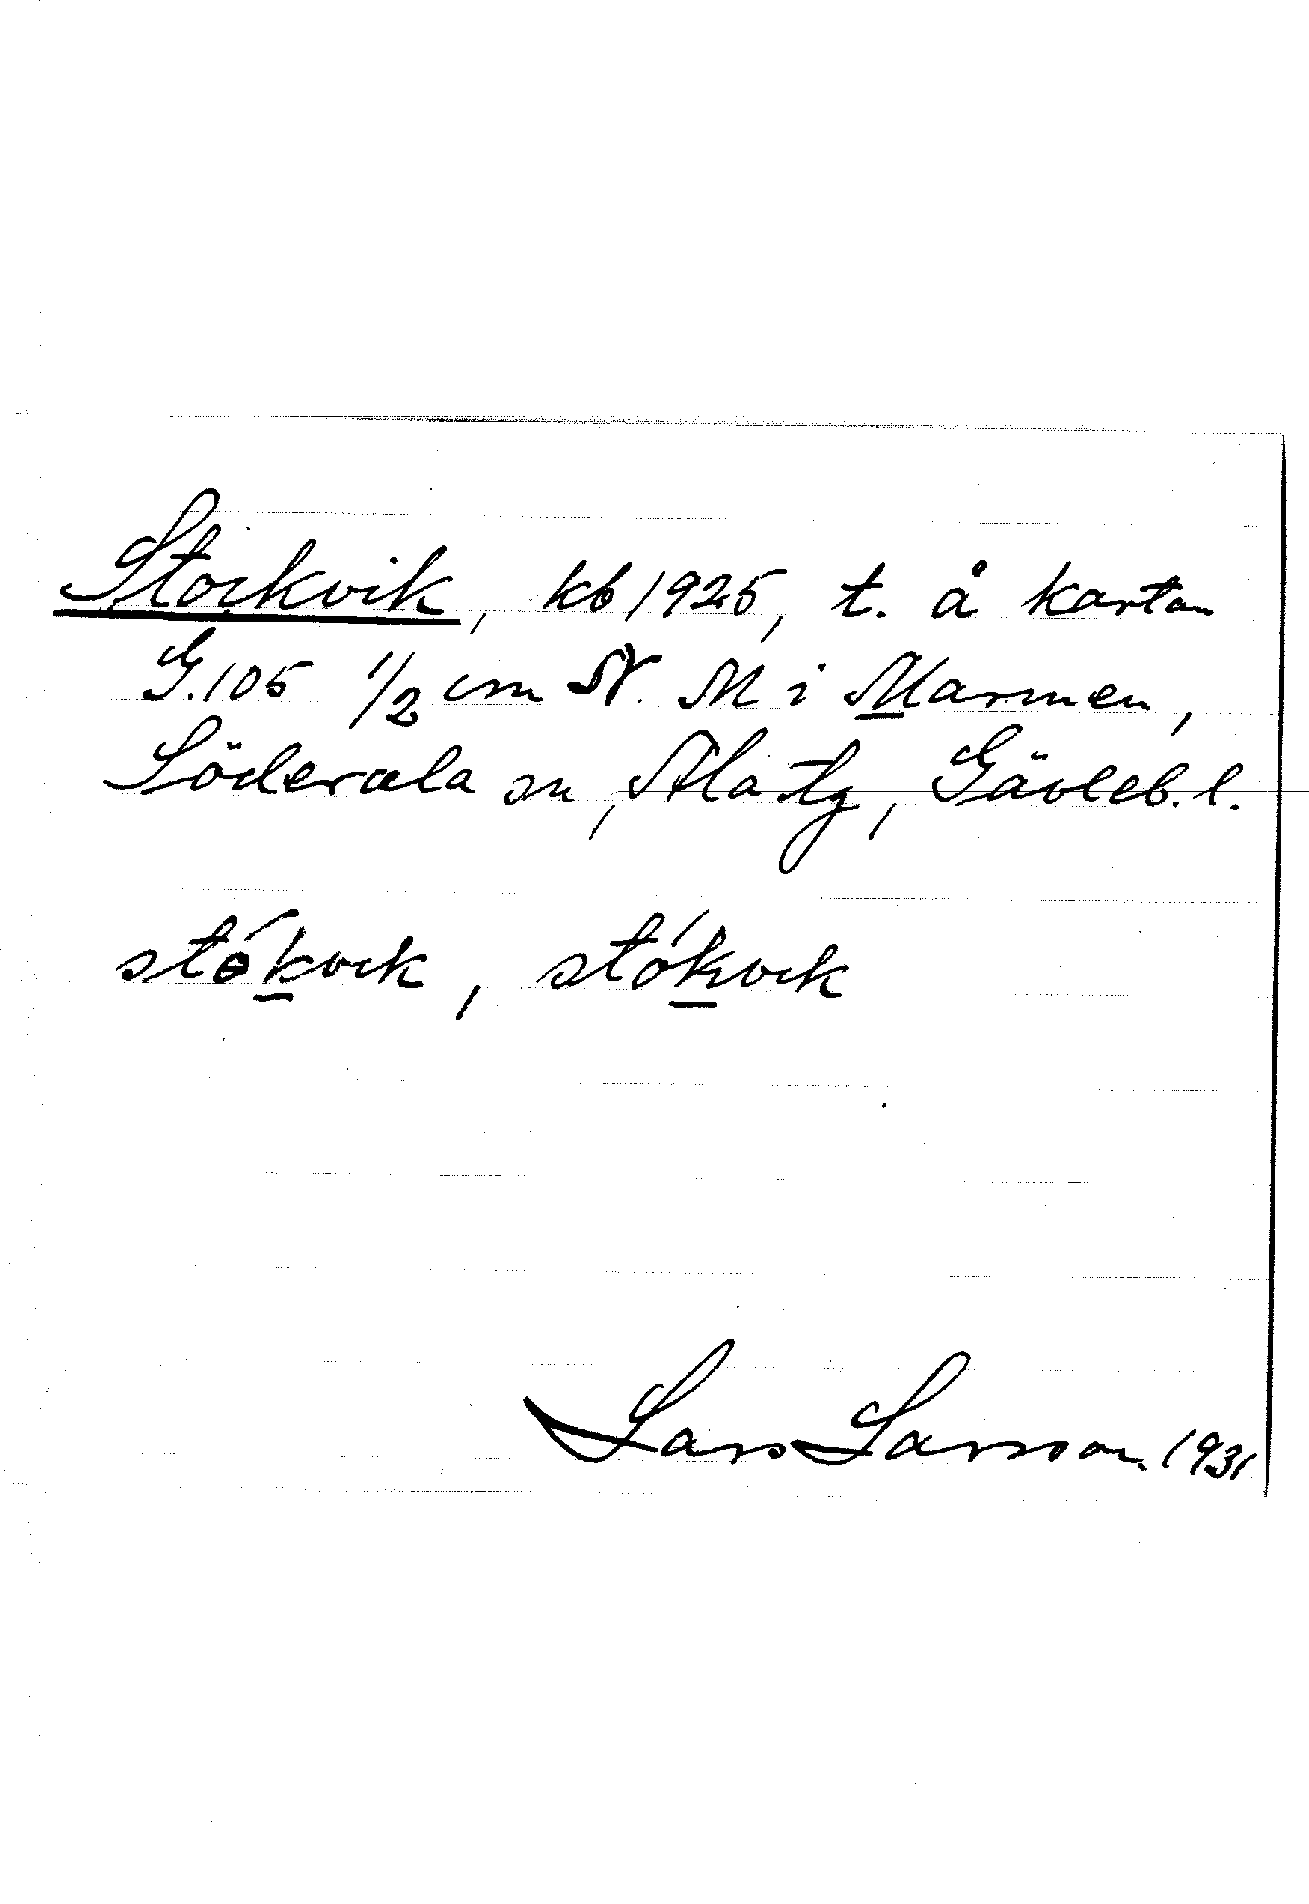 Stockvik, kb 1925, t. å kartan
G.105 1/2 cm N. M i Marmen,
Söderala sn, Ala tg, Gävleb. l.
stókvik, stókvik
Lars Larsson 1931